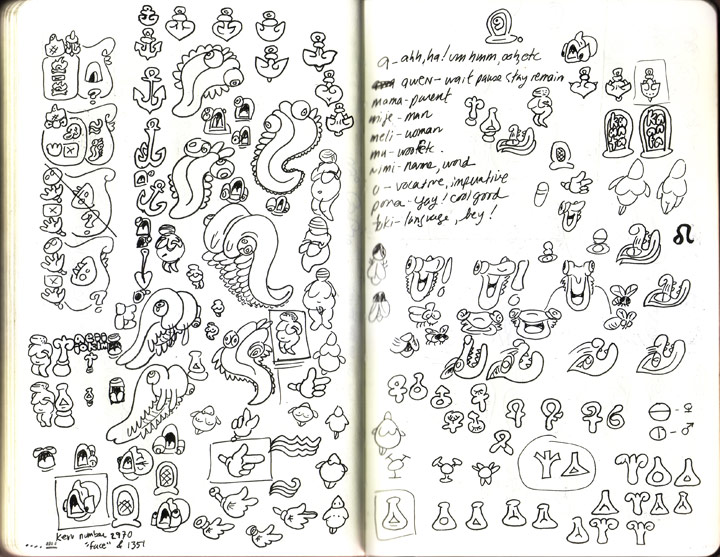 number 2970
"face" & 1351
a - ahh, ha! hmm, ooh, etc
awen - wait pause stay remain
mama - parent
mije - man
meli - woman
mu - etc.
nimi - name, word
o - vocative, imperative
pona - yay! cool good
toki - language, hey!